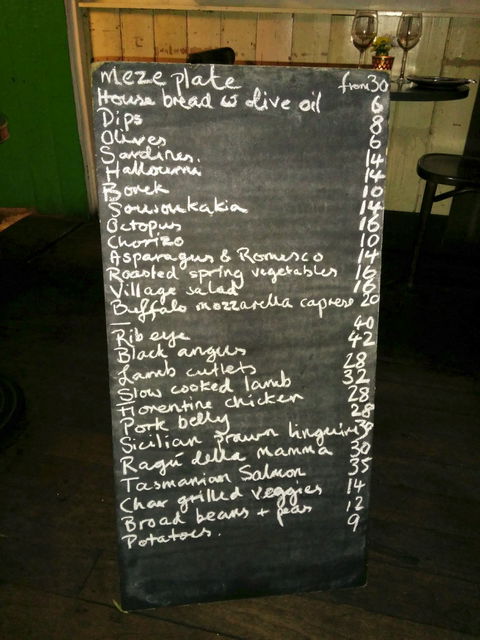 meze plate from 30
House bread w olive oil 6
Dips 8
Olives 6
Sardines. 14
Halloumi 14
Borek 10
Souvoukakia 14
Octopus 16
Chorizo 10
Asparagus & Romesco 14
Roasted spring vegetables 16
Village salad 16
Buffalo mozzarella caprese 20
—
Rib eye 40
Black angus 42
Lamb cutlets 28
Slow cooked lamb 32
Florentine chicken 28
Pork belly 28
Sicilian prawn linguini
Ragú della mamma 30
Tasmanian Salmon 35
Char grilled veggies 14
Broad beans + peas 12
Potatoes. 9